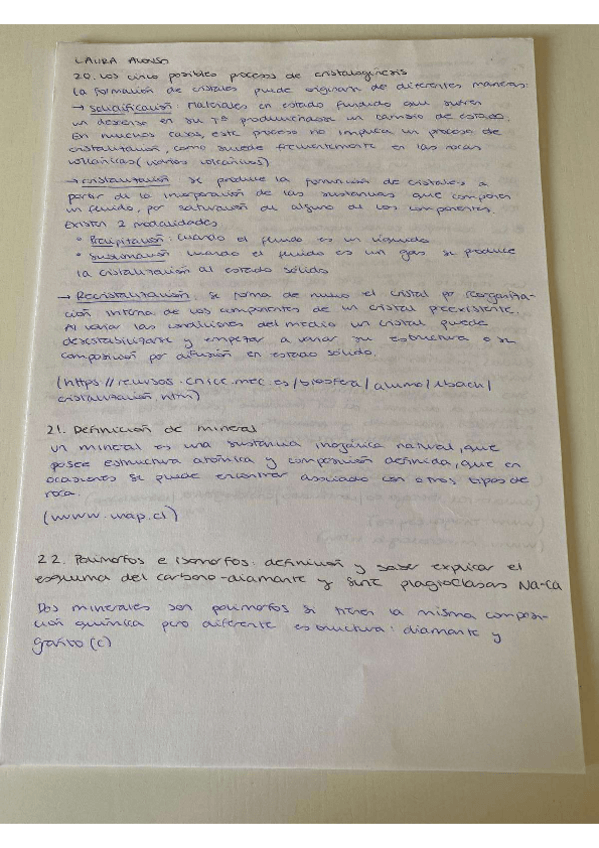 LAURA ALONSO
20. Los cinco posibles procesos de cristalogénesis
La formación de cristales puede originarse de diferentes maneras:
→ Solidificación: Materiales en estado fundido que sufren
un descenso en su Tª produciendose un cambio de estado.
En muchos casos, este proceso no implica un proceso de
cristalización, como sucede frecuentemente en las rocas
volcánicas (vidrios volcánicos)
→ cristalización se produce la formación de cristales a
partir de la incorporación de las sustancias que componen
un fluido, por saturación de alguno de los componentes.
Existen 2 modalidades
• Precipitación: cuando el fluido es un líquido
• Sublimación cuando el fluido es un gas se produce
la cristalización al estado sólido
→ Recristalización: se forma de nuevo el cristal por reorganiza-
ción interna de los componentes de un cristal preexistente.
Al variar las condiciones del medio un cristal puede
desestabilizarse y empezar a variar su estructura o su
composición por difusión en estado sólido.
(https://recursos.cnice.mec.es/biosfera/alumno/1bach/
cristalización.htm)
21. Definición de mineral
Un mineral es una sustancia inorgánica natural, que
posee estructura atómica y composición definida, que en
ocasiones se puede encontrar asociado con otros tipos de
roca.
(www.uap.cl)
22. Polimorfos e isomorfos: definición y saber explicar el
esquema del carbono-diamante y serie plagioclasas Na-Ca
Dos minerales son polimorfos si tienen la misma composi-
ción química pero diferente estructura: diamante y
grafito (C)